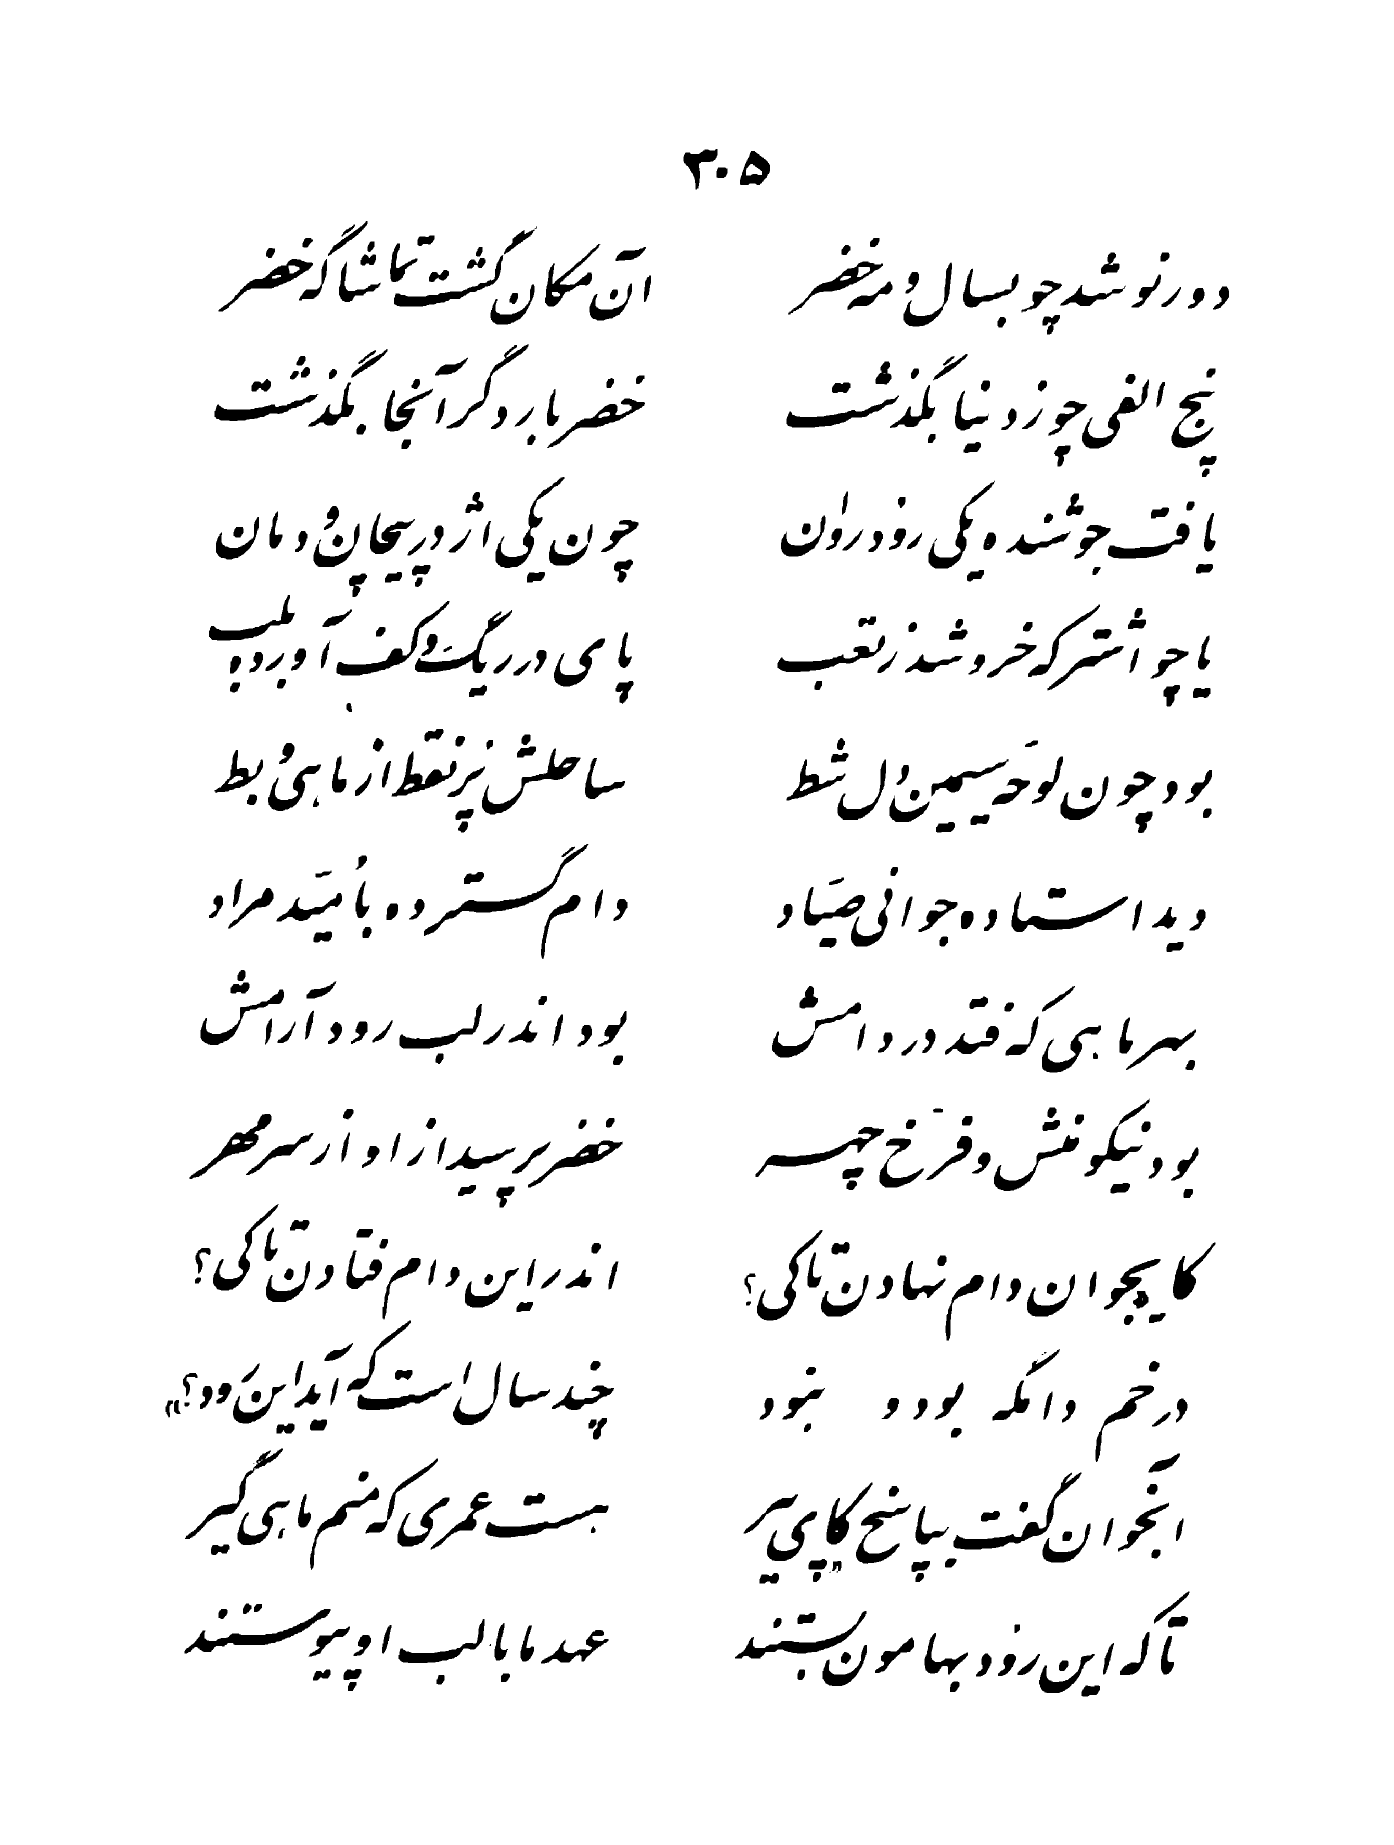 ۳۰۵
دور نو شد چو بسال و مه خضر    آن مکان گشت تماشاگه خضر
پنج الفی چو ز دنیا بگذشت    خضر بار دگر آنجا بگذشت
یافت جوشنده یکی رود روان    چون یکی اژدر پیچان و دمان
یا چو اشتر که خروشد ز تعب    پای در ریگ و کف آورده بلب
بود چون لوحه سیمین ول شط    ساحلش پر نقط از ماهی و بط
دید استاده جوانی صیّاد    دام گسترده بامّید مراد
بهر ماهی که فتد در دامش    بود اندر لب رود آرامش
بود نیکو منش و فرّخ چهر    خضر پرسید از او از سر مهر
کایجوان دام نهادن تا کی؟    اندر این دام فتادن تا کی؟
در خم دامگه بود و نبود    چند سال است که آید این رود؟»
آنجوان گفت بپاسخ کای پیر    هست عمری که منم ماهی گیر
تا که این رود بهامون بستند    عهد ما با لب او پیوستند